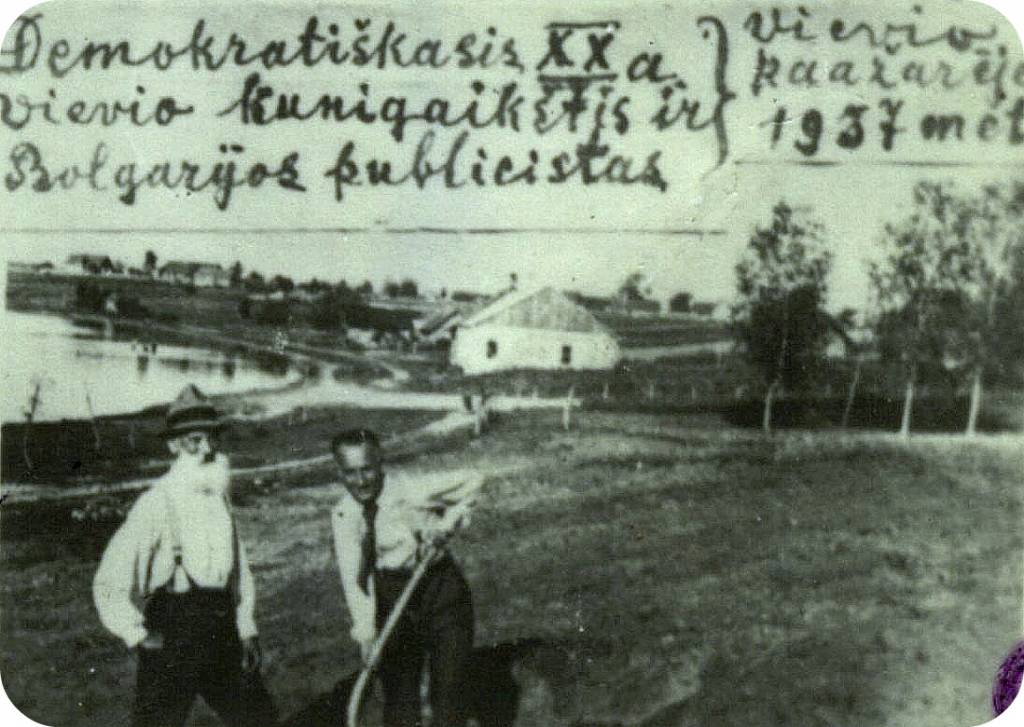 Demokratiškasis XX a
vievio kunigaikštis ir
Bolgarijos publicistas
Vievio
1937 met